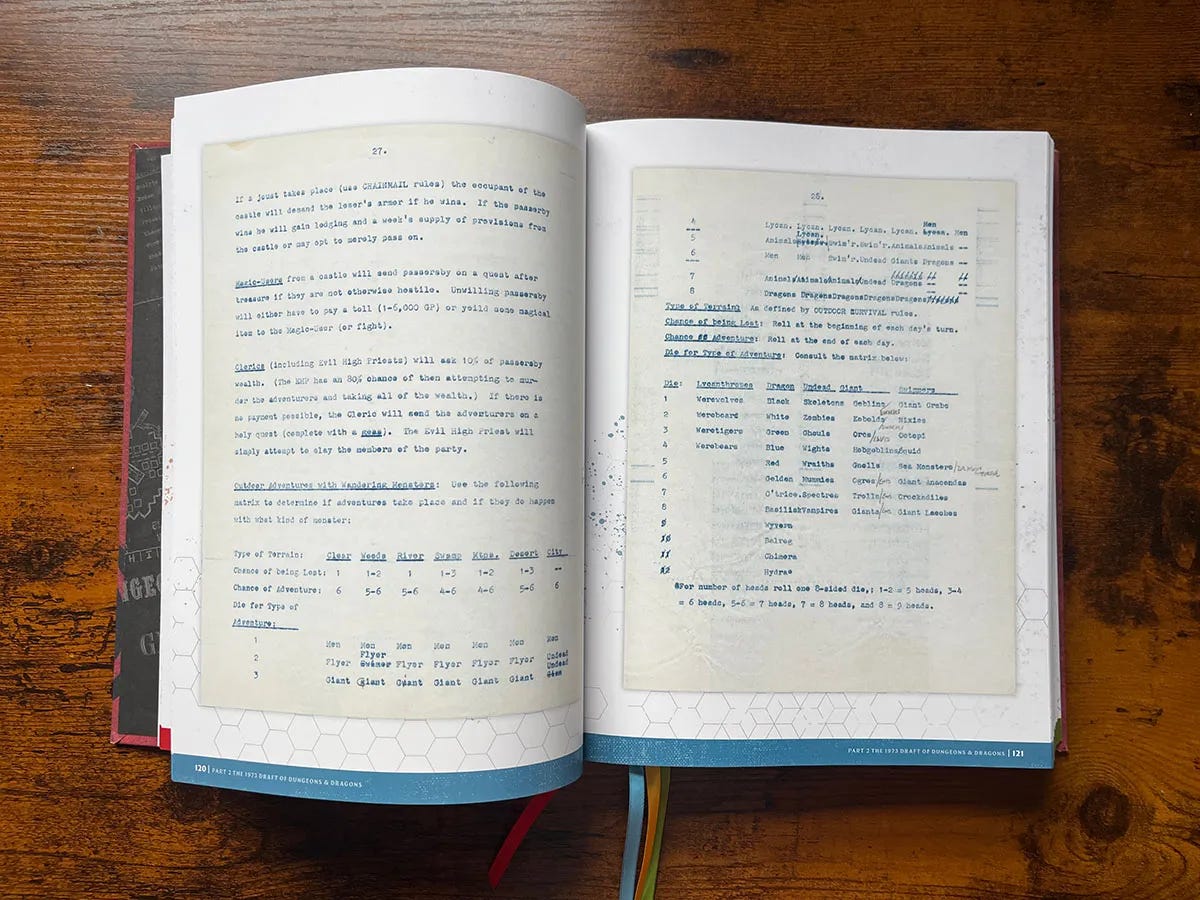 27.
If a joust takes place (use CHAINMAIL rules) the occupant of the
castle will demand the loser's armor if he wins. If the passerby
wins he will gain lodging and a week's supply of provisions from
the castle or may opt to merely pass on.
Magic-Users from a castle will send passersby on a quest after
treasure if they are not otherwise hostile. Unwilling passersby
will either have to pay a toll (1-6,000 GP) or yeild some magical
item to the Magic-User (or fight).
Clerics (including Evil High Priests) will ask 10% of passersby
wealth. (The EHP has an 80% chance of then attempting to mur-
der the adventurers and taking all of the wealth.) If there is
no payment possible, the Cleric will send the adventurers on a
holy quest (complete with a geas). The Evil High Priest will
simply attempt to slay the members of the party.
Outdoor Adventures with Wandering Monsters: Use the following
matrix to determine if adventures take place and if they do happen
with what kind of monster:
Type of Terrain: Clear Woods River Swamp Mtns. Desert City
Chance of being Lost: 1 1-2 1 1-3 1-2 1-3 --
Chance of Adventure: 6 5-6 5-6 4-6 4-6 5-6 6
Die for Type of
Adventure:
1 Men Men Men Men Men Men Men
Flyer
2 Flyer Swimer Flyer Flyer Flyer Flyer Undead
Undead
3 Giant Giant Giant Giant Giant Giant
120 | PART 2 THE 1973 DRAFT OF DUNGEONS & DRAGONS
28.
Men
4 Lycan. Lycan. Lycan. Lycan. Lycan. Lycan. Men
Lycan.
5 Animals Swim'r. Swim'r. Animals Animals --
6 Men Men Swim'r. Undead Giants Dragons --
7 Animals/Animals/Animals/Undead Dragons -- --
8 Dragons Dragons Dragons Dragons Dragons
Type of Terrain: As defined by OUTDOOR SURVIVAL rules.
Chance of being Lost: Roll at the beginning of each day's turn.
Chance of Adventure: Roll at the end of each day.
Die for Type of Adventure: Consult the matrix below:
Die: Lycanthropes Dragon Undead Giant Swimmers
1 Werewolves Black Skeletons Goblins Giant Crabs
2 Wereboard White Zombies Kobolds Nixies
3 Weretigers Green Ghouls Orcs Octopi
4 Werebears Blue Wights Hobgoblins Squid
5 Red Wraiths Gnolls Sea Monsters
6 Golden Mummies Ogres Giant Anacondas
7 C'trice. Spectres Trolls Crockadiles
8 Basilisk Vampires Giants Giant Leeches
9 Wyvern
10 Balrog
11 Chimera
12 Hydrae
For number of heads roll one 8-sided die,; 1-2 = 5 heads, 3-4
= 6 heads, 5-6 = 7 heads, 7 = 8 heads, and 8 = 9 heads.
PART 2 THE 1973 DRAFT OF DUNGEONS & DRAGONS | 121